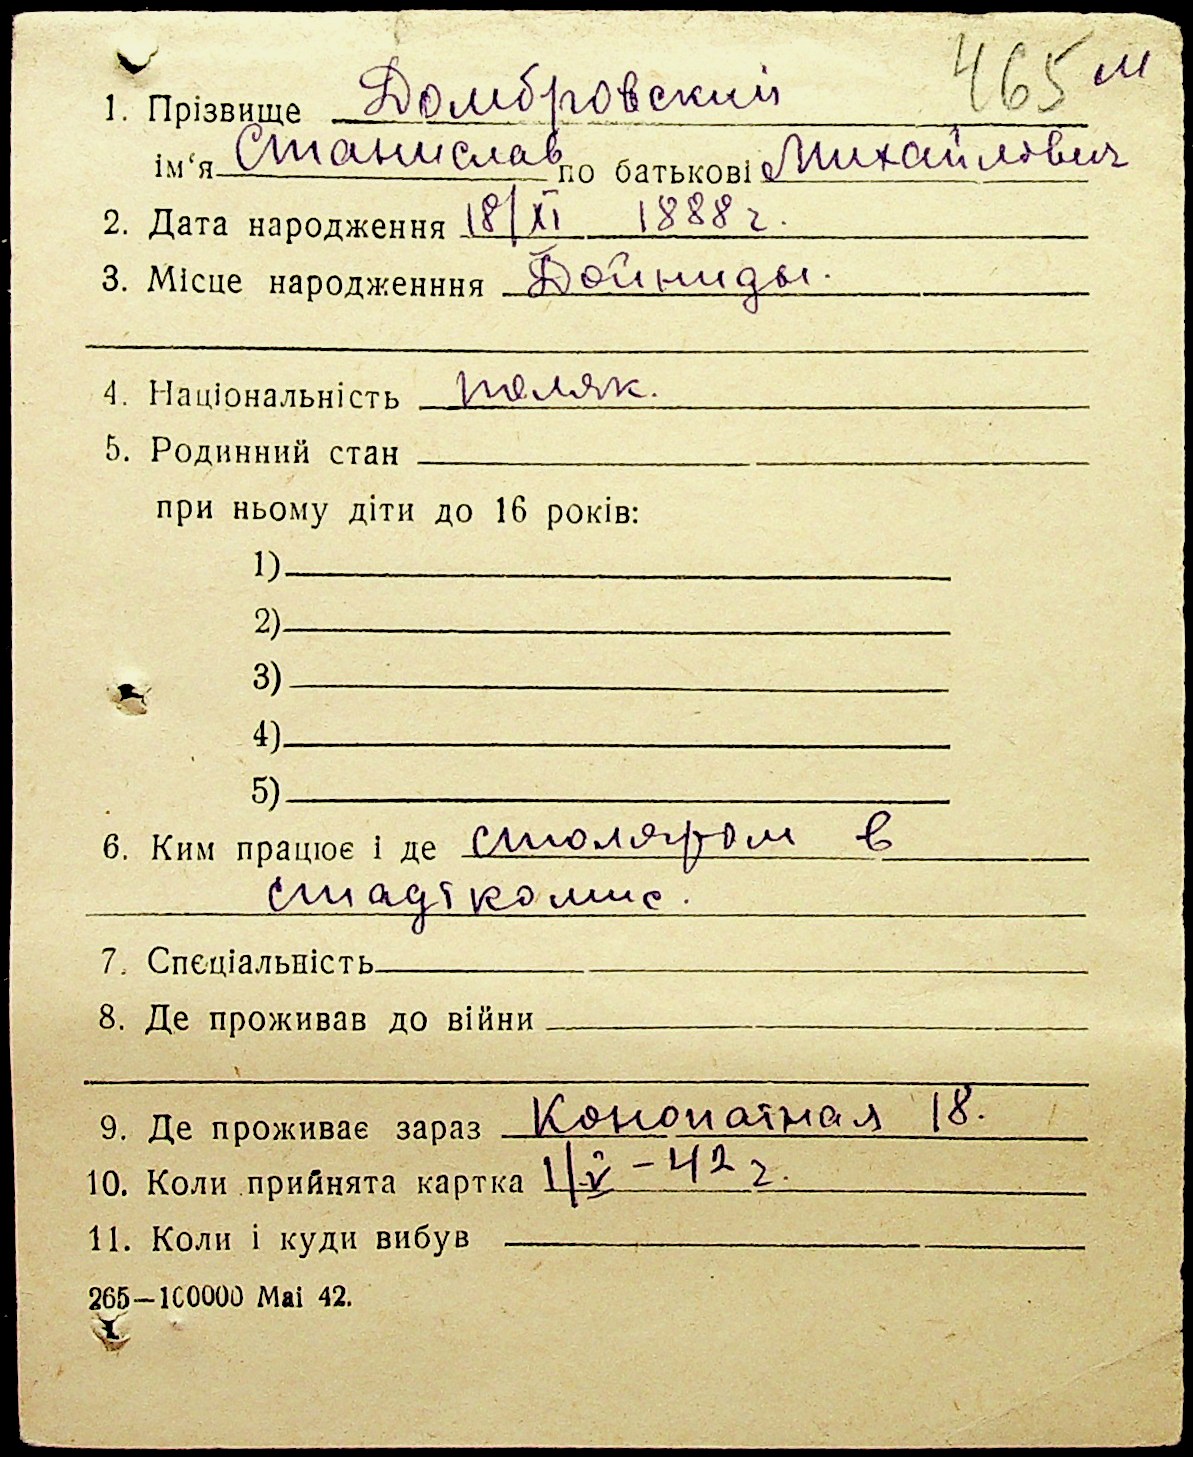 465 м
1. Прізвище Домбровский
ім‘я Станислав по батькові Михайлович
2. Дата народження 18/XI 1888 г.
3. Місце народженння Дойниды.
4. Національність поляк.
5. Родинний стан
при ньому діти до 16 років:
1)
2)
3)
4)
5)
6. Ким працює і де столяром в
стадткомис.
7. Спєціальність
8. Де проживав до війни
9. Де проживає зараз Конопатная 18.
10. Коли прийнята картка 1/V – 42 г.
11. Коли і куди вибув
265—100000 Mai 42.